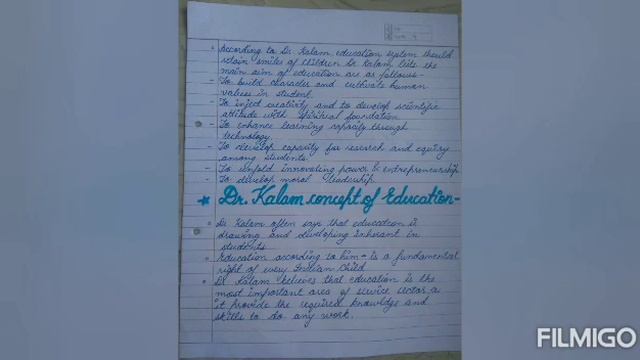 • According to Dr. Kalam education system should
retain smiles of children Dr Kalam lists the
main aim of education are as follows-
- To build character and cultivate human
values in student.
- To inject creativity and to develop scientific
attitude with spiritual foundation
- To enhance learning capacity through
technology.
- To develop capacity for research and equiry
among students.
- To unfold innovating power & entrepreneurship
- To develop moral leadership
★ Dr. Kalam concept of Education-
• Dr Kalam often says that education is
drawing and developing inherant in
students
• Education according to him - is a fundamental
right of every Indian Child
• Dr Kalam believes that education is the
most important area of service sector a
it provide the required knowledge and
skills to do any work.
FILMIGO